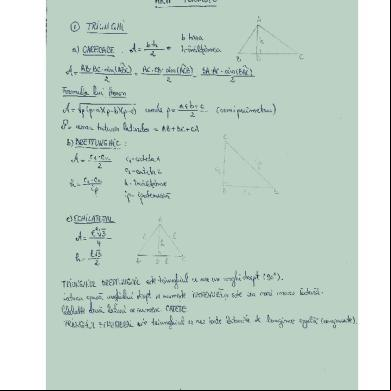 ① TRIUNGHI
a) OARECARE. A = b·h/2 b = baza
h = înălțimea
A = AB·BC·sin(ABC)/2 = AC·CB·sin(ACB)/2 = BA·AC·sin(BAC)/2
Formula lui Heron
A = √p(p-a)(p-b)(p-c) unde p = a+b+c/2 (semiperimetru)
P = suma tuturor laturilor = AB+BC+CA
b) DREPTUNGHIC:
A = c₁·c₂/2 c₁ = cateta 1
c₂ = cateta 2
h = c₁·c₂/ip h = înălțimea
ip = ipotenuză
c) ECHILATERAL
A = l²√3/4
h = l√3/2
TRIUNGHIUL DREPTUNGHIC este triunghiul ce are un unghi drept (90°).
latura opusă unghiului drept se numește IPOTENUZĂ și este cea mai mare latură.
Celelalte două laturi se numesc CATETE
TRIUNGHIUL ECHILATERAL este triunghiul ce are toate laturile de lungime egală (congruente).